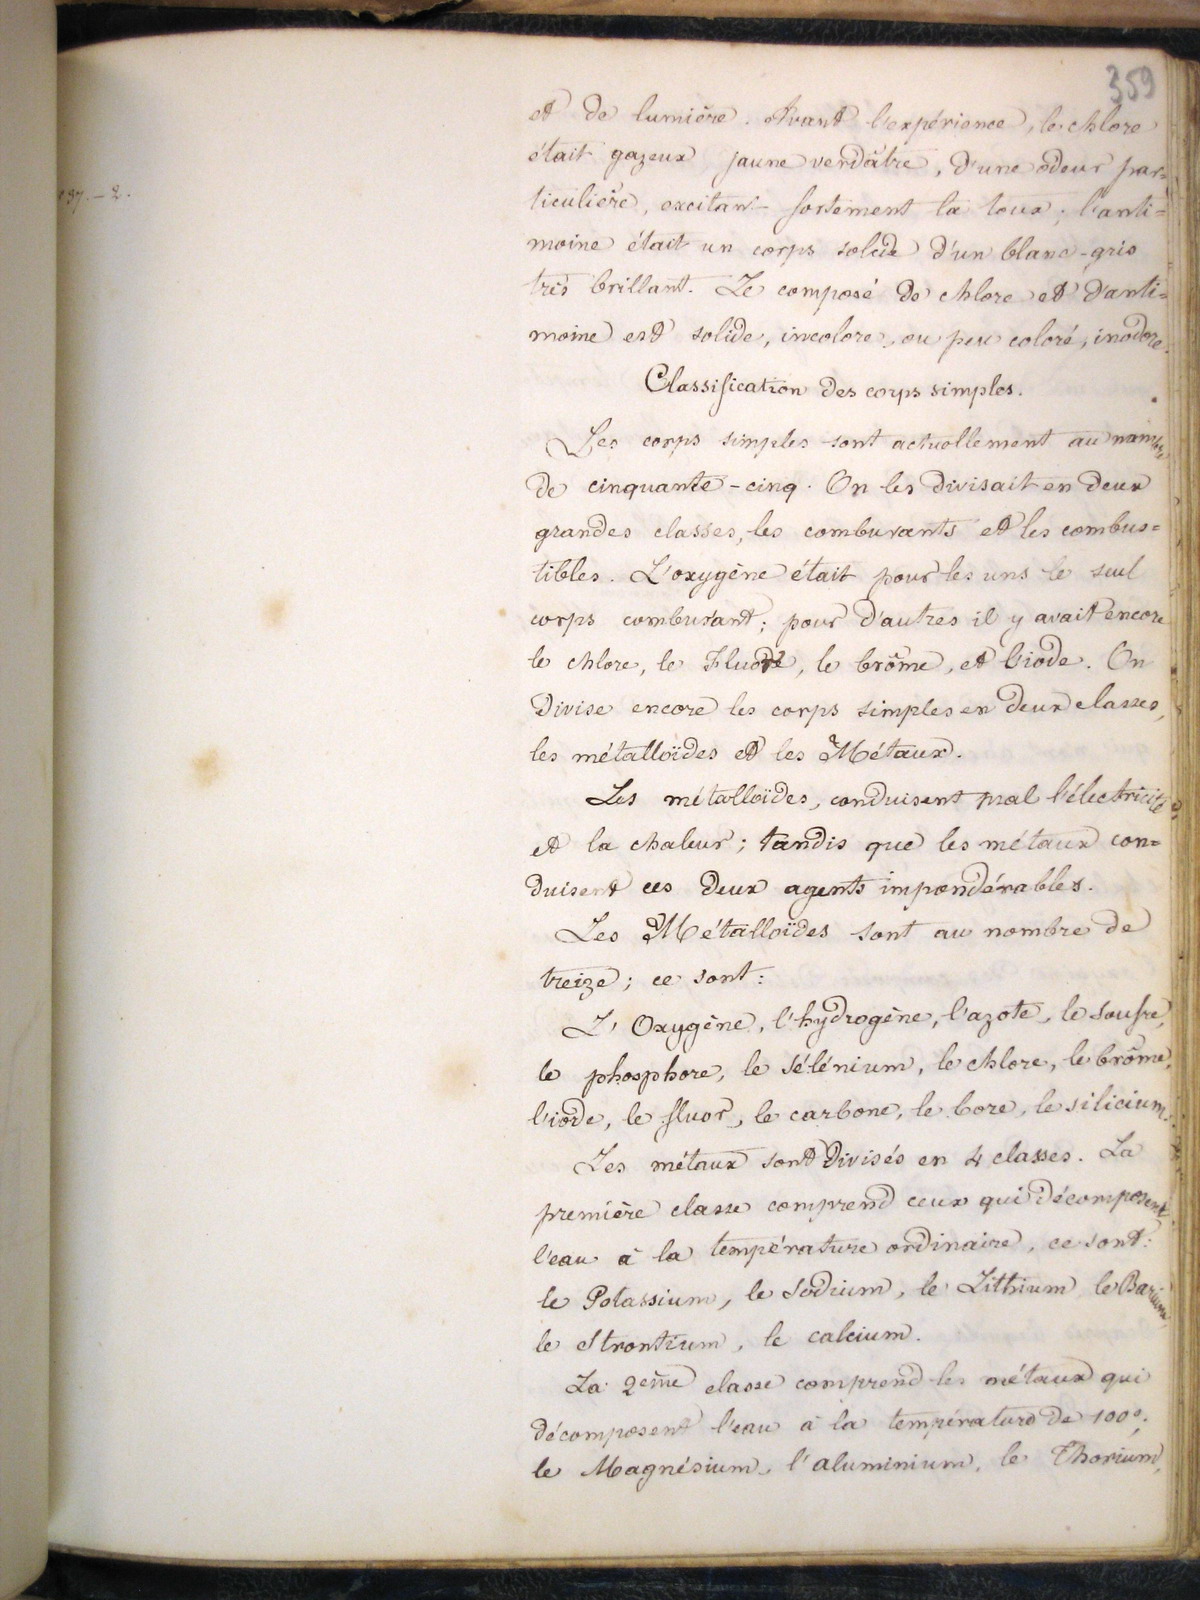 359
et de lumière. Avant l'expérience, le chlore
était gazeux jaune verdâtre, d'une odeur par=
97.-2.
ticulière, excitant fortement la toux; l'anti=
moine était un corps solide d'un blanc-gris
très brillant. Le composé de chlore et d'anti=
moine est solide, incolore, ou peu coloré, inodore.
Classification des corps simples.
Les corps simples sont actuellement au nombre
de cinquante-cinq. On les divisait en deux
grandes classes, les comburants et les combus=
tibles. L'oxygène était pour les uns le seul
corps comburant; pour d'autres il y avait encore
le chlore, le Fluore, le brôme, et l'iode. On
divise encore les corps simples en deux classes,
les métalloïdes et les Métaux.
Les métalloïdes, conduisent mal l'électricité
et la chaleur; tandis que les métaux con=
duisent ces deux agents impondérables.
Les Métalloïdes sont au nombre de
treize; ce sont:
L'Oxygène, l'hydrogène, l'azote, le soufre,
le phosphore, le sélénium, le chlore, le brôme,
l'iode, le fluor, le carbone, le bore, le silicium.
Les métaux sont divisés en 4 classes. La
première classe comprend ceux qui décomposent
l'eau à la température ordinaire, ce sont:
le Potassium, le sodium, le Lithium, le Barium,
le Strontium, le calcium.
La 2ème classe comprend les métaux qui
décomposent l'eau à la température de 100°;
le Magnésium, l'aluminium, le Thorium,